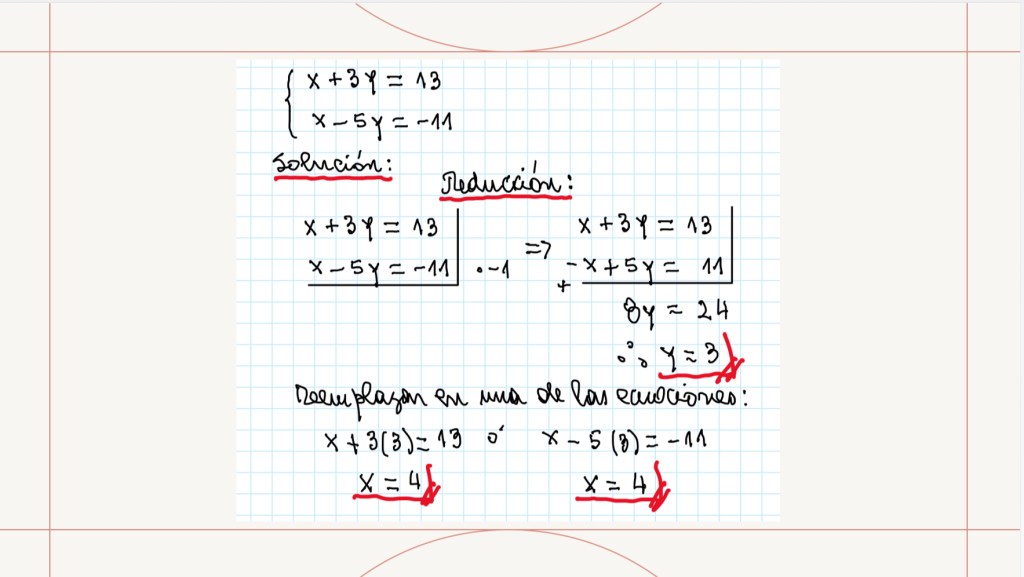 x + 3y = 13
x - 5y = -11
Solución:
Reducción:
x + 3y = 13
x - 5y = -11 · -1
=>
x + 3y = 13
-x + 5y = 11
+
8y = 24
∴ y = 3
Reemplazan en una de las ecuaciones:
x + 3(3) = 13 ó x - 5(3) = -11
x = 4 x = 4